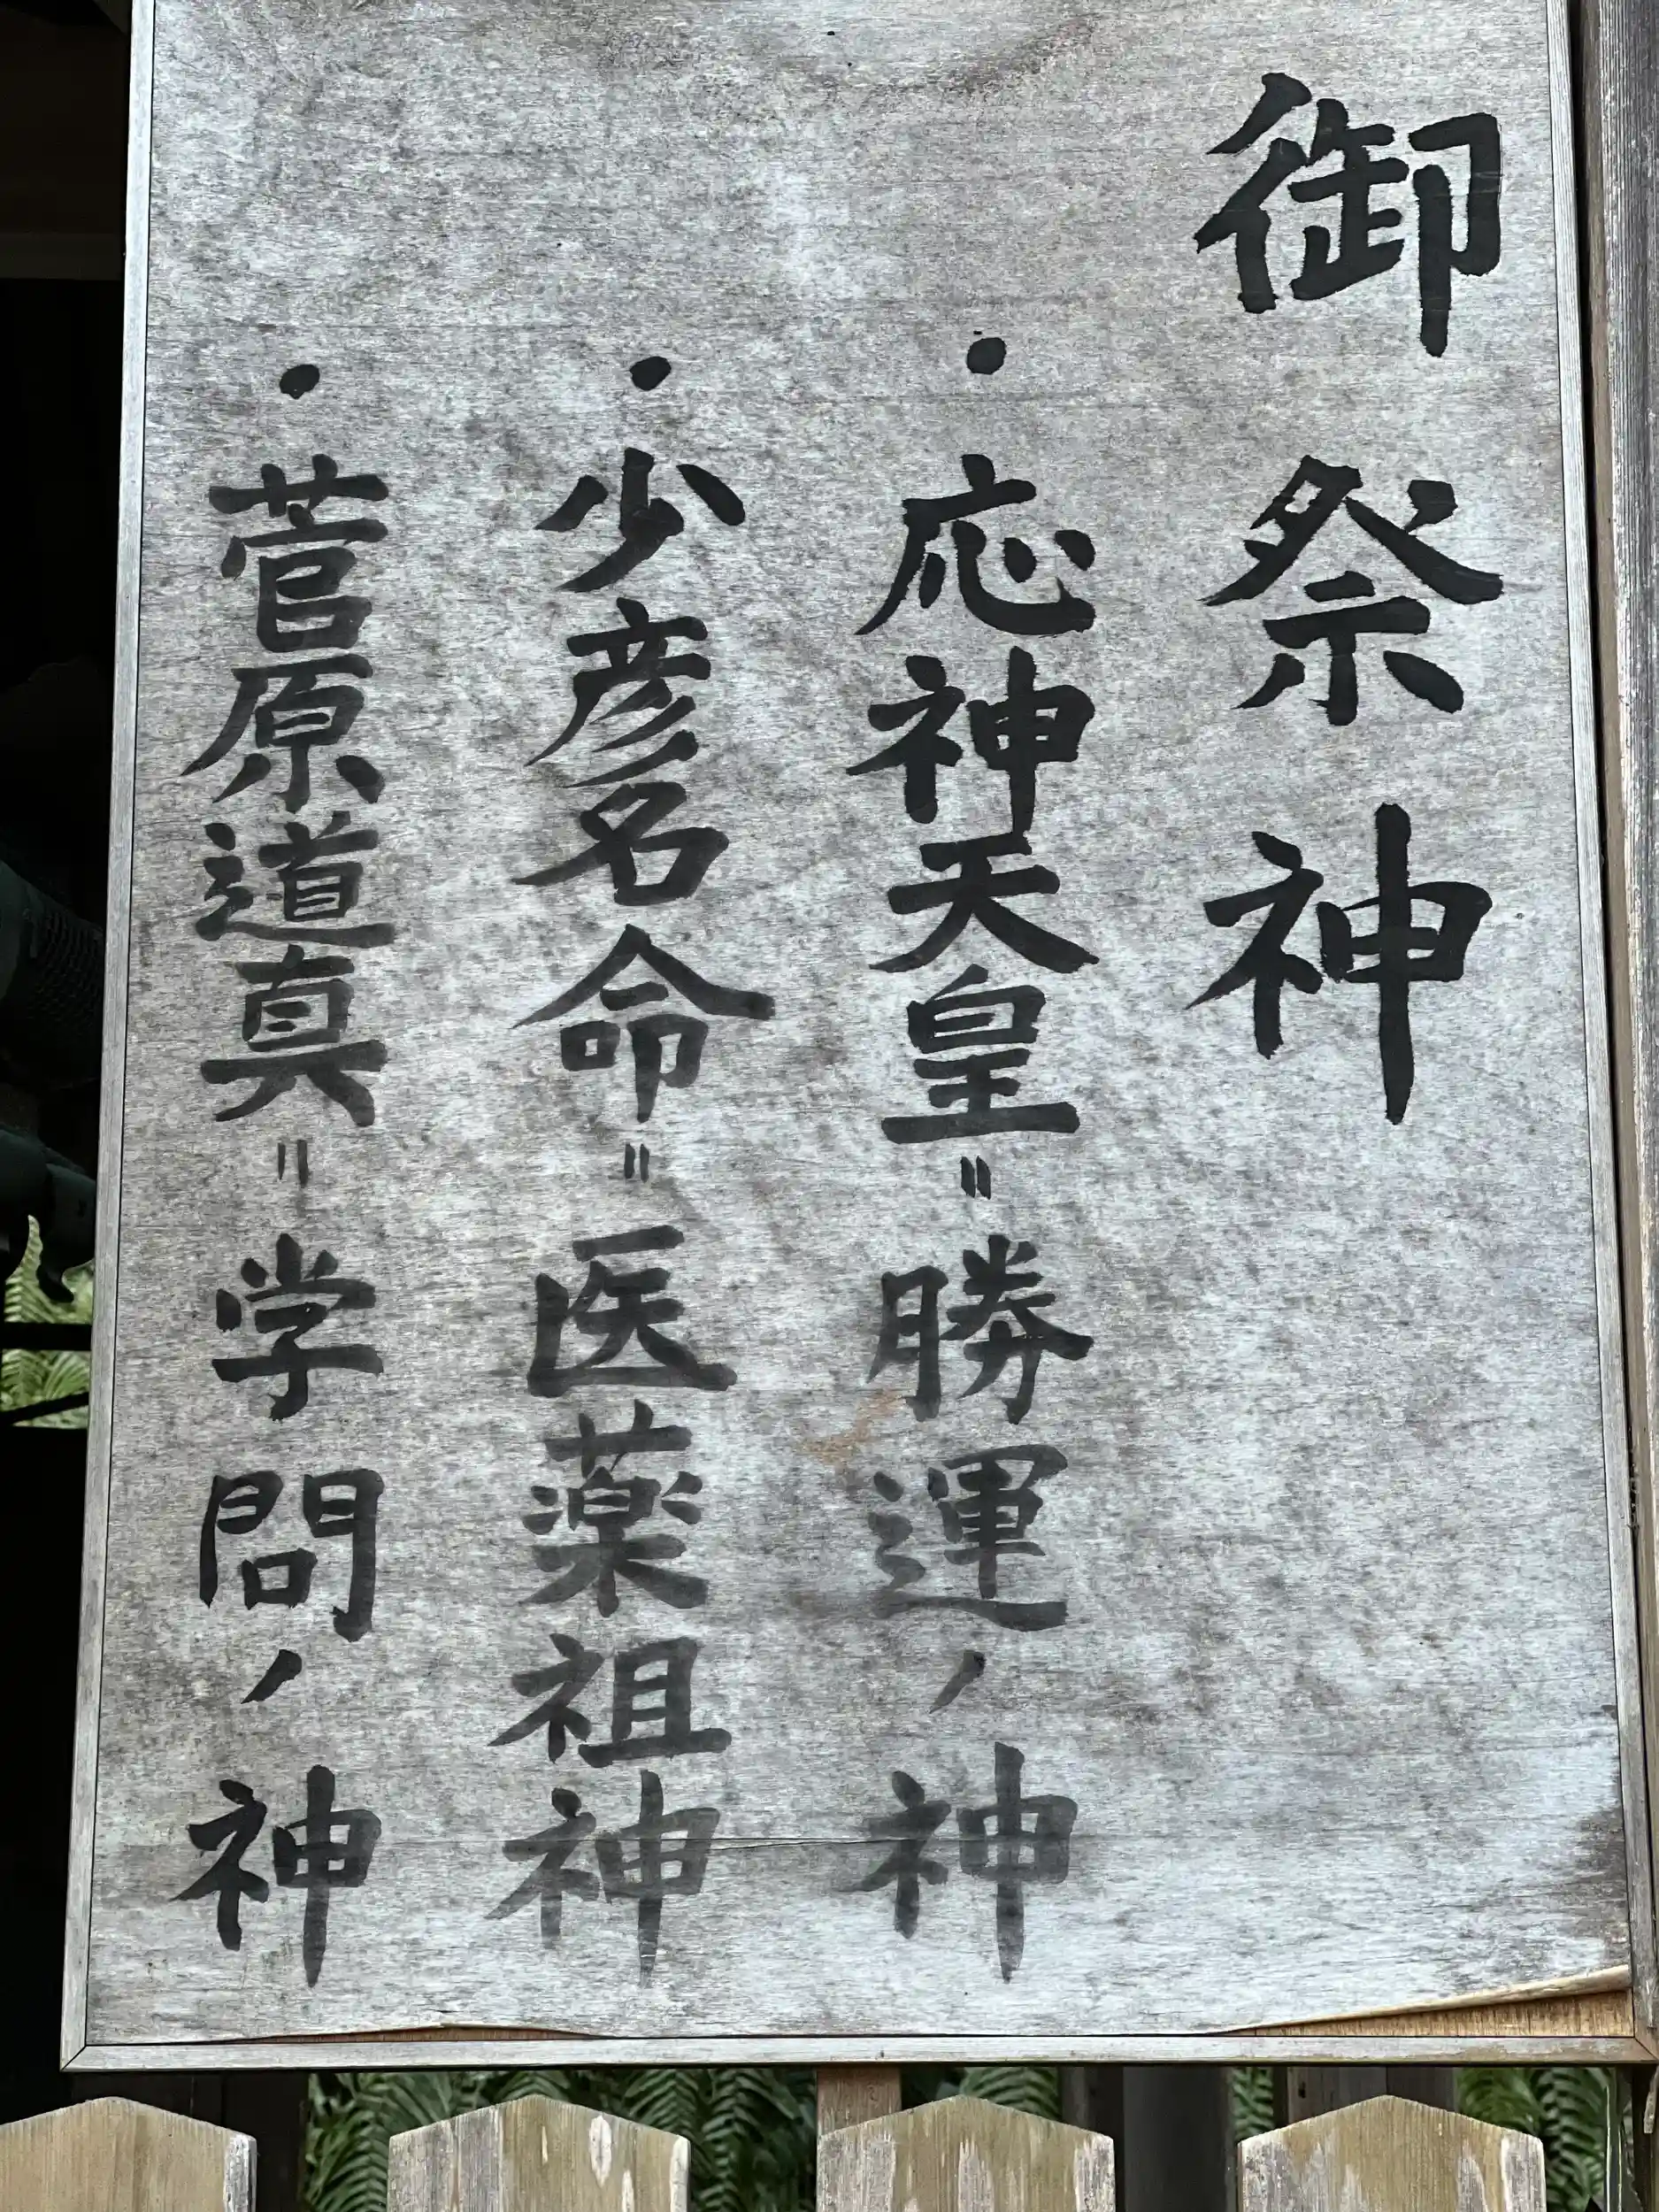 御祭神
・応神天皇＝勝運ノ神
・少彦名命＝医薬祖神
・菅原道真＝学問ノ神